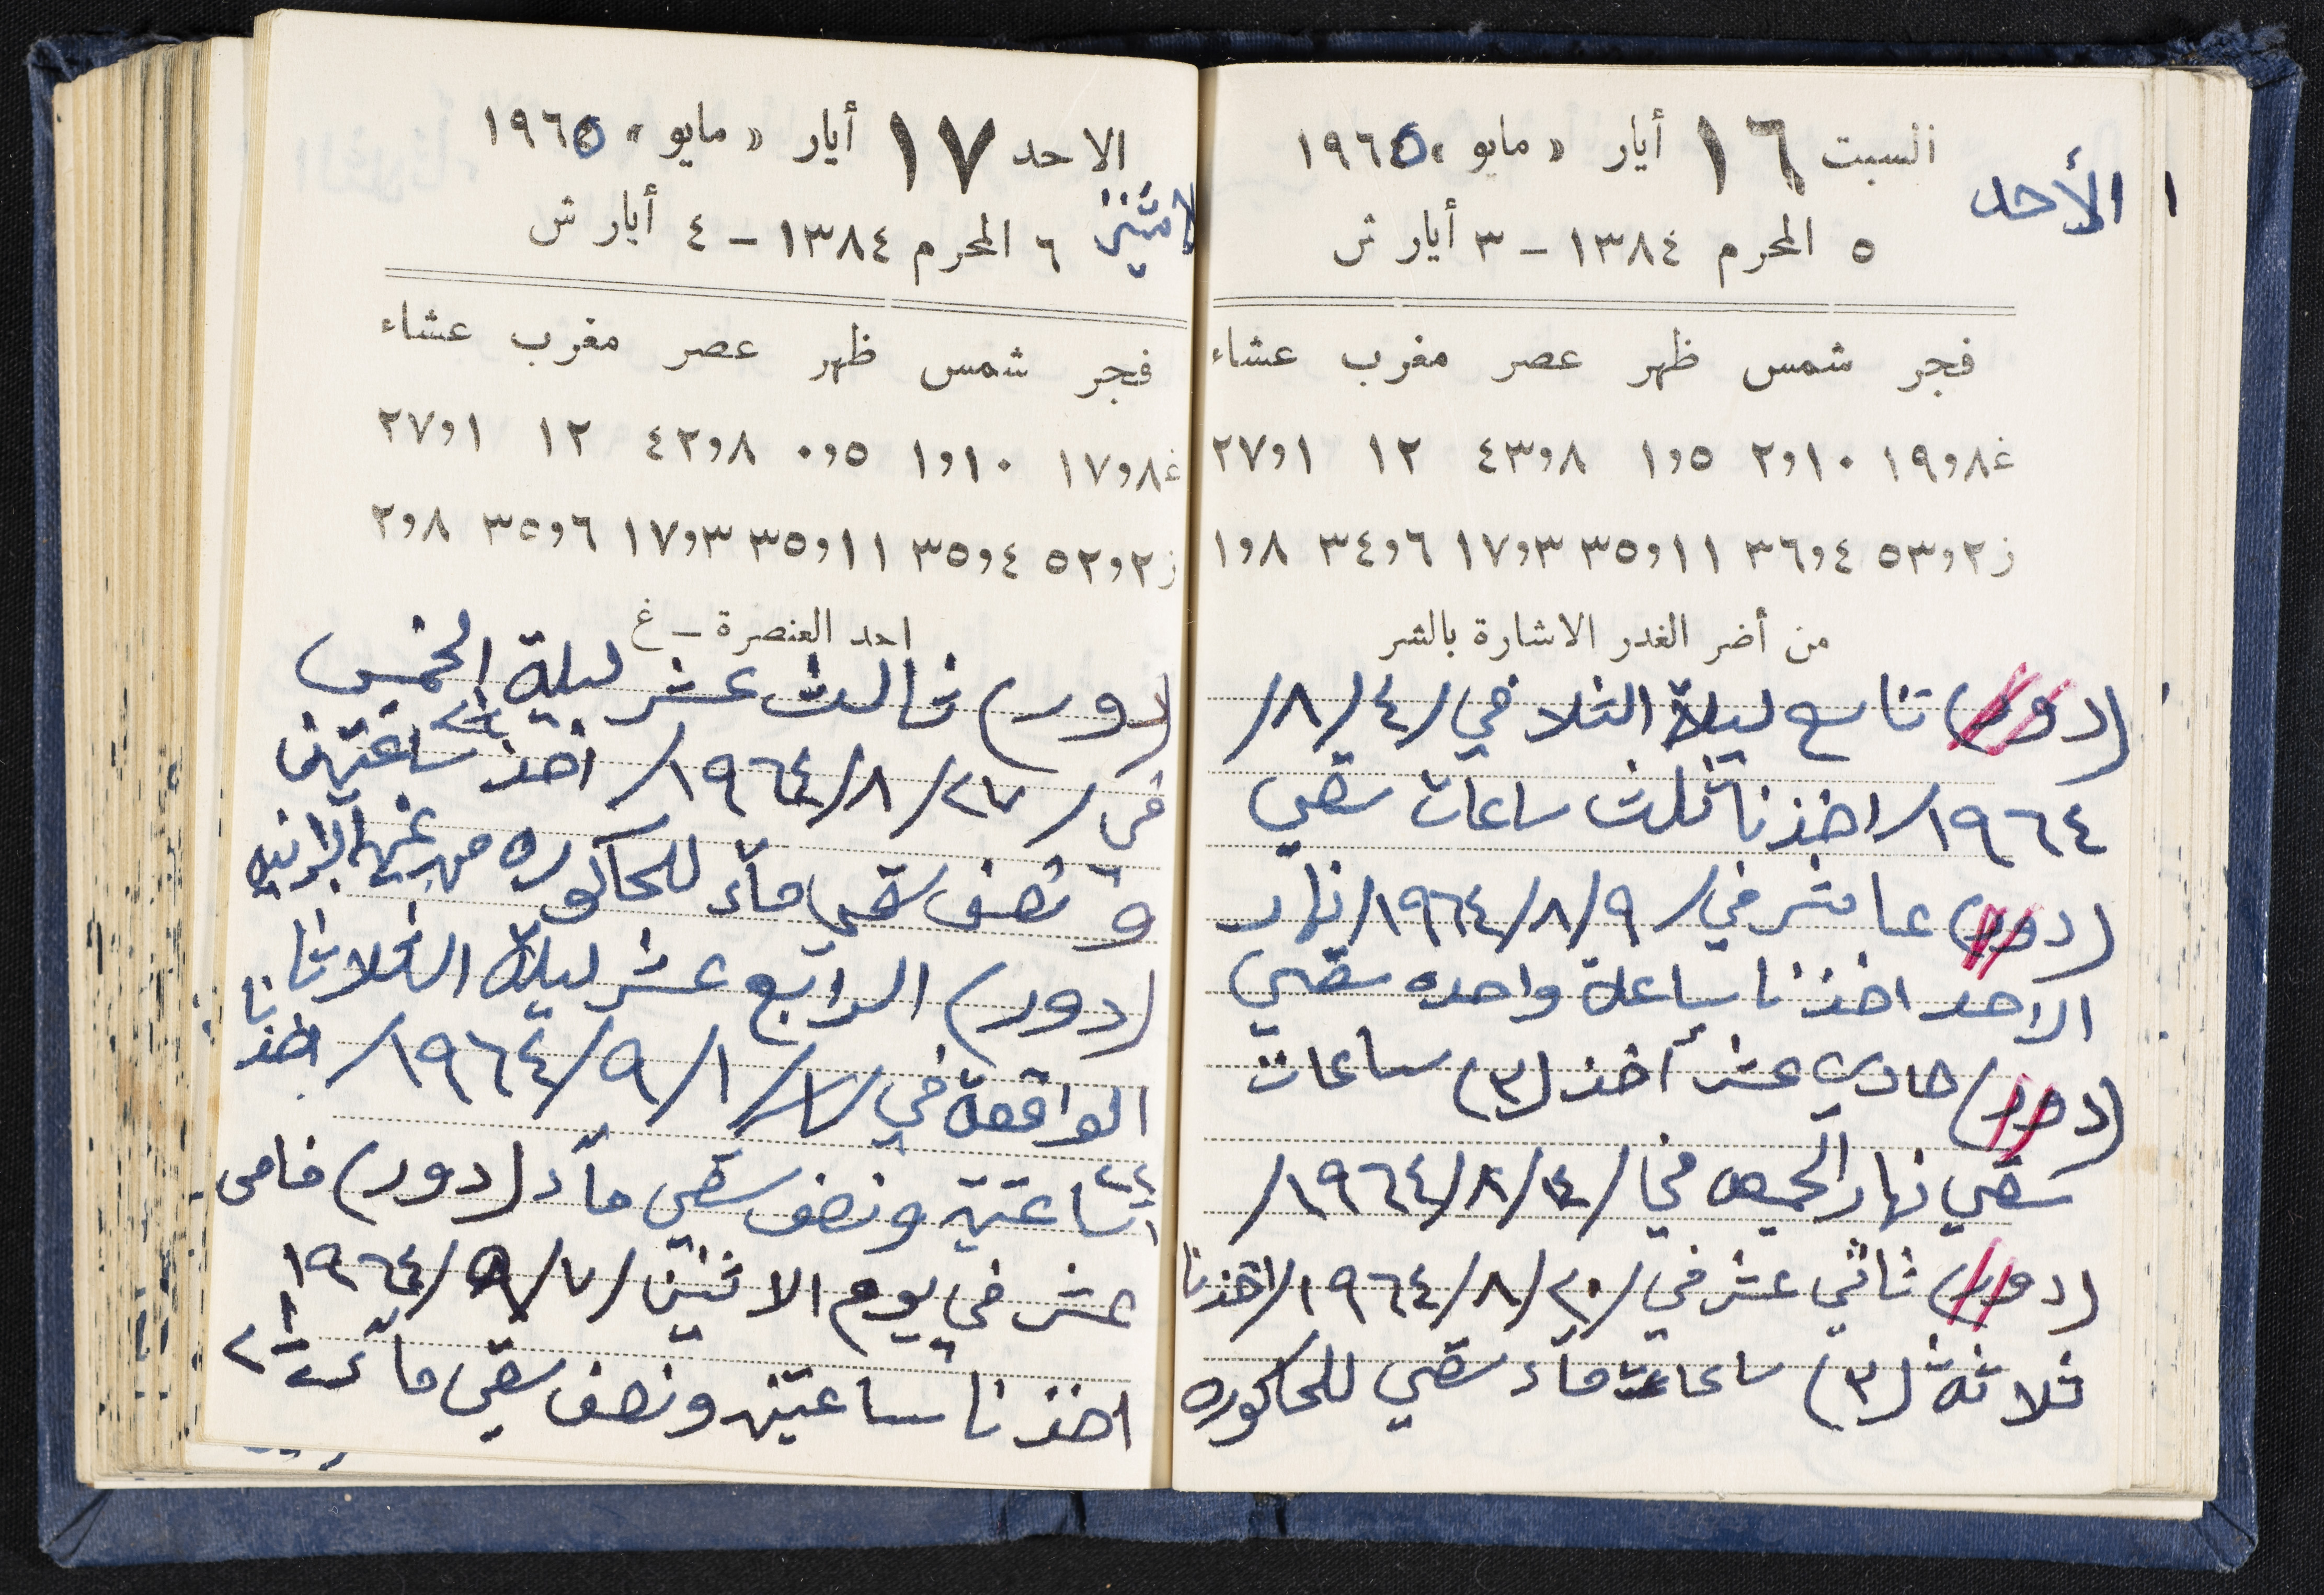 السبت ١٦ أيار «مايو» ١٩٦٥
الأحد
٥ المحرم ١٣٨٤ – ٣ أيار ش
فجر شمس ظهر عصر مغرب عشاء
غ ١٩و٨ ٢و١٠ ١و٥ ٤٣و٨ ١٢ ٢٧و١
ز ٥٣و٢ ٣٦و٤ ٣٥و١١ ١٧و٣ ٣٤و٦ ١و٨
من أضر الغدر الاشارة بالشر
(دور) تاسع ليلة الثلا في /٤/٨/
١٩٦٤/ اخذنا ثلث ساعات سقي
(دور) عاشر في /٩/٨/١٩٦٤/ نهار
الاحد اخذنا ساعة واحده سقي
(دور) حادي عشر أخذ (٣) ساعات
سقي نهار الخميس في /١٤/٨/١٩٦٤/
(دور) ثاني عشر في /٢٠/٨/١٩٦٤/ اخذنا
ثلاثة (٣) ساعات ماء سقي للحاكوره
الاحد ١٧ أيار «مايو» ١٩٦٥
الاثنين
٦ المحرم ١٣٨٤ – ٤ أيار ش
فجر شمس ظهر عصر مغرب عشاء
غ ١٧و٨ ١و١٠ ٠و٥ ٤٢و٨ ١٢ ٢٧و١
ز ٥٢و٢ ٣٥و٤ ٣٥و١١ ١٧و٣ ٣٥و٦ ٢و٨
احد العنصرة – غ
(دور) ثالث عشر ليلة الخميس
في /٢٧/٨/١٩٦٤/ اخذ ساعتين
و نصف سقي ماء للحاكوره من
(دور) الرابع عشر ليلة الثلاثا
الواقعة في /١/٩/١٩٦٤/ اخذنا
ساعتين ونصف سقي ماء (دور) خامس
عشر في يوم الاثنين /٧/٩/١٩٦٤
اخذنا ساعتين ونصف سقي ماء